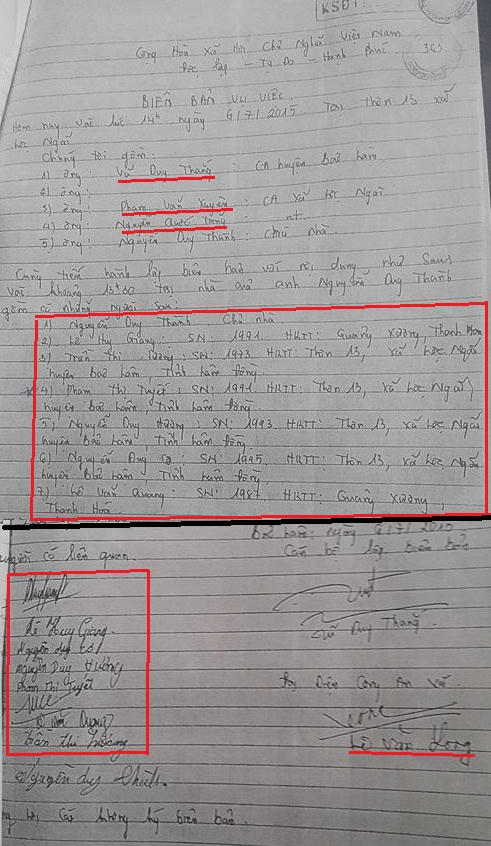 KSĐT
Cộng Hòa Xã Hội Chủ Nghĩa Việt Nam
Độc lập - Tự Do - Hạnh Phúc
BIÊN BẢN VỤ VIỆC
Hôm nay vào lúc 14h ngày 6/7/2015. Tại Thôn 13 xã
Lộc Ngãi
Chúng tôi gồm:
1) ông: Vũ Duy Thắng : CA huyện bảo Lâm
2) ông:
3) ông: Phạm Văn Xuyên : CA xã Lộc Ngãi
4) ông: Nguyễn Quốc : nt
5) ông: Nguyễn Duy Thành : Chủ nhà
Cùng tiến hành lập biên bản với nội dung như sau:
Vào khoảng tại nhà anh Nguyễn Duy Thành
gồm có những người sau:
1) Nguyễn Duy Thành Chủ nhà
2) Lê Huy Giang: SN: 1991. HKTT: Quảng Xương, Thanh Hóa
3) Trần Thị : SN: 1973. HKTT: Thôn 13, xã Lộc Ngãi
huyện bảo Lâm, Tỉnh Lâm Đồng.
4) Phạm Thị Tuyết: SN: 1991. HKTT: Thôn 13, xã Lộc Ngãi
huyện bảo Lâm, Tỉnh Lâm Đồng.
5) Nguyễn Duy Hương: SN: 1993. HKTT: Thôn 13, xã Lộc Ngãi
huyện bảo Lâm, Tỉnh Lâm Đồng
6) Nguyễn Duy : SN: 1995. HKTT: Thôn 13, xã Lộc Ngãi
huyện Bảo Lâm, Tỉnh Lâm Đồng.
7) Lê Văn Quang: SN: 1987. HKTT: Quảng Xương,
Thanh Hóa
người có liên quan.
Lê Huy Giang.
Nguyễn duy
Nguyễn Duy Hương
Phạm Thị Tuyết
Trần thị
Nguyễn duy Thành.
ngày 6/7/2015
Cán bộ lập biên bản
Vũ Duy Thắng.
Đại Diện Công An xã
Lê Văn Long